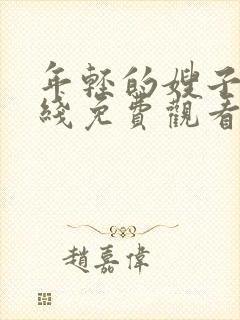 年轻的嫂子
綫免費觀看
趙嘉偉